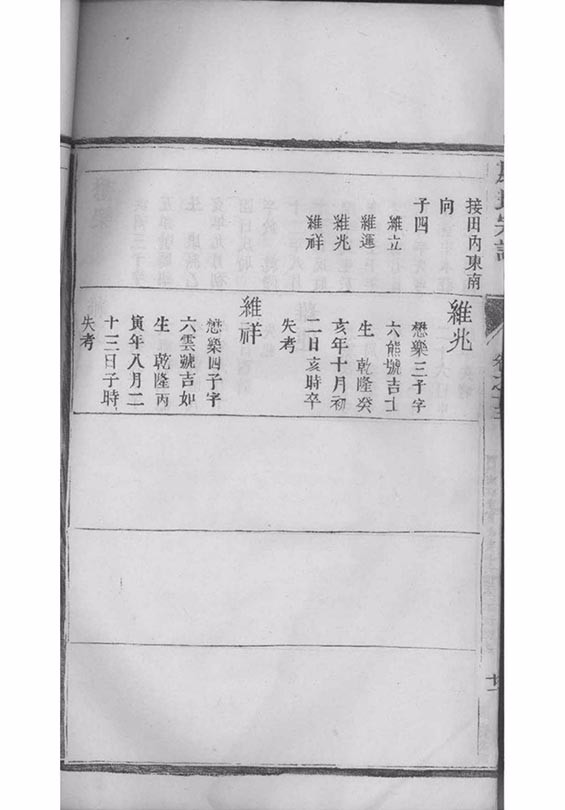 接田內東南
向
子四
維立
維暹
維兆
維祥
維兆
懋樂三子字
六熊號吉士
生 乾隆癸
亥年十月初
二日亥時卒
失考
維祥
懋樂四子字
六雲號吉如
生 乾隆丙
寅年八月二
十三日子時
失考